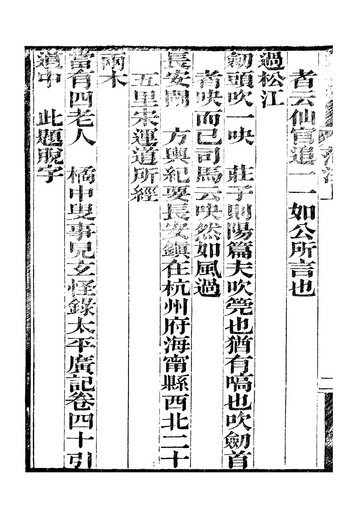 者云仙官追一一如公所言也
過松江
劒頭吹一吷　莊子則陽篇夫吹筦也猶有嗃也吹劒首
者吷而已司馬云吷然如風過
長安閘　方輿紀要長安鎮在杭州府海甯縣西北二十
五里宋運道所經
兩木
當有四老人　橘中叟事見玄怪錄太平廣記卷四十引
道中　此題脫字